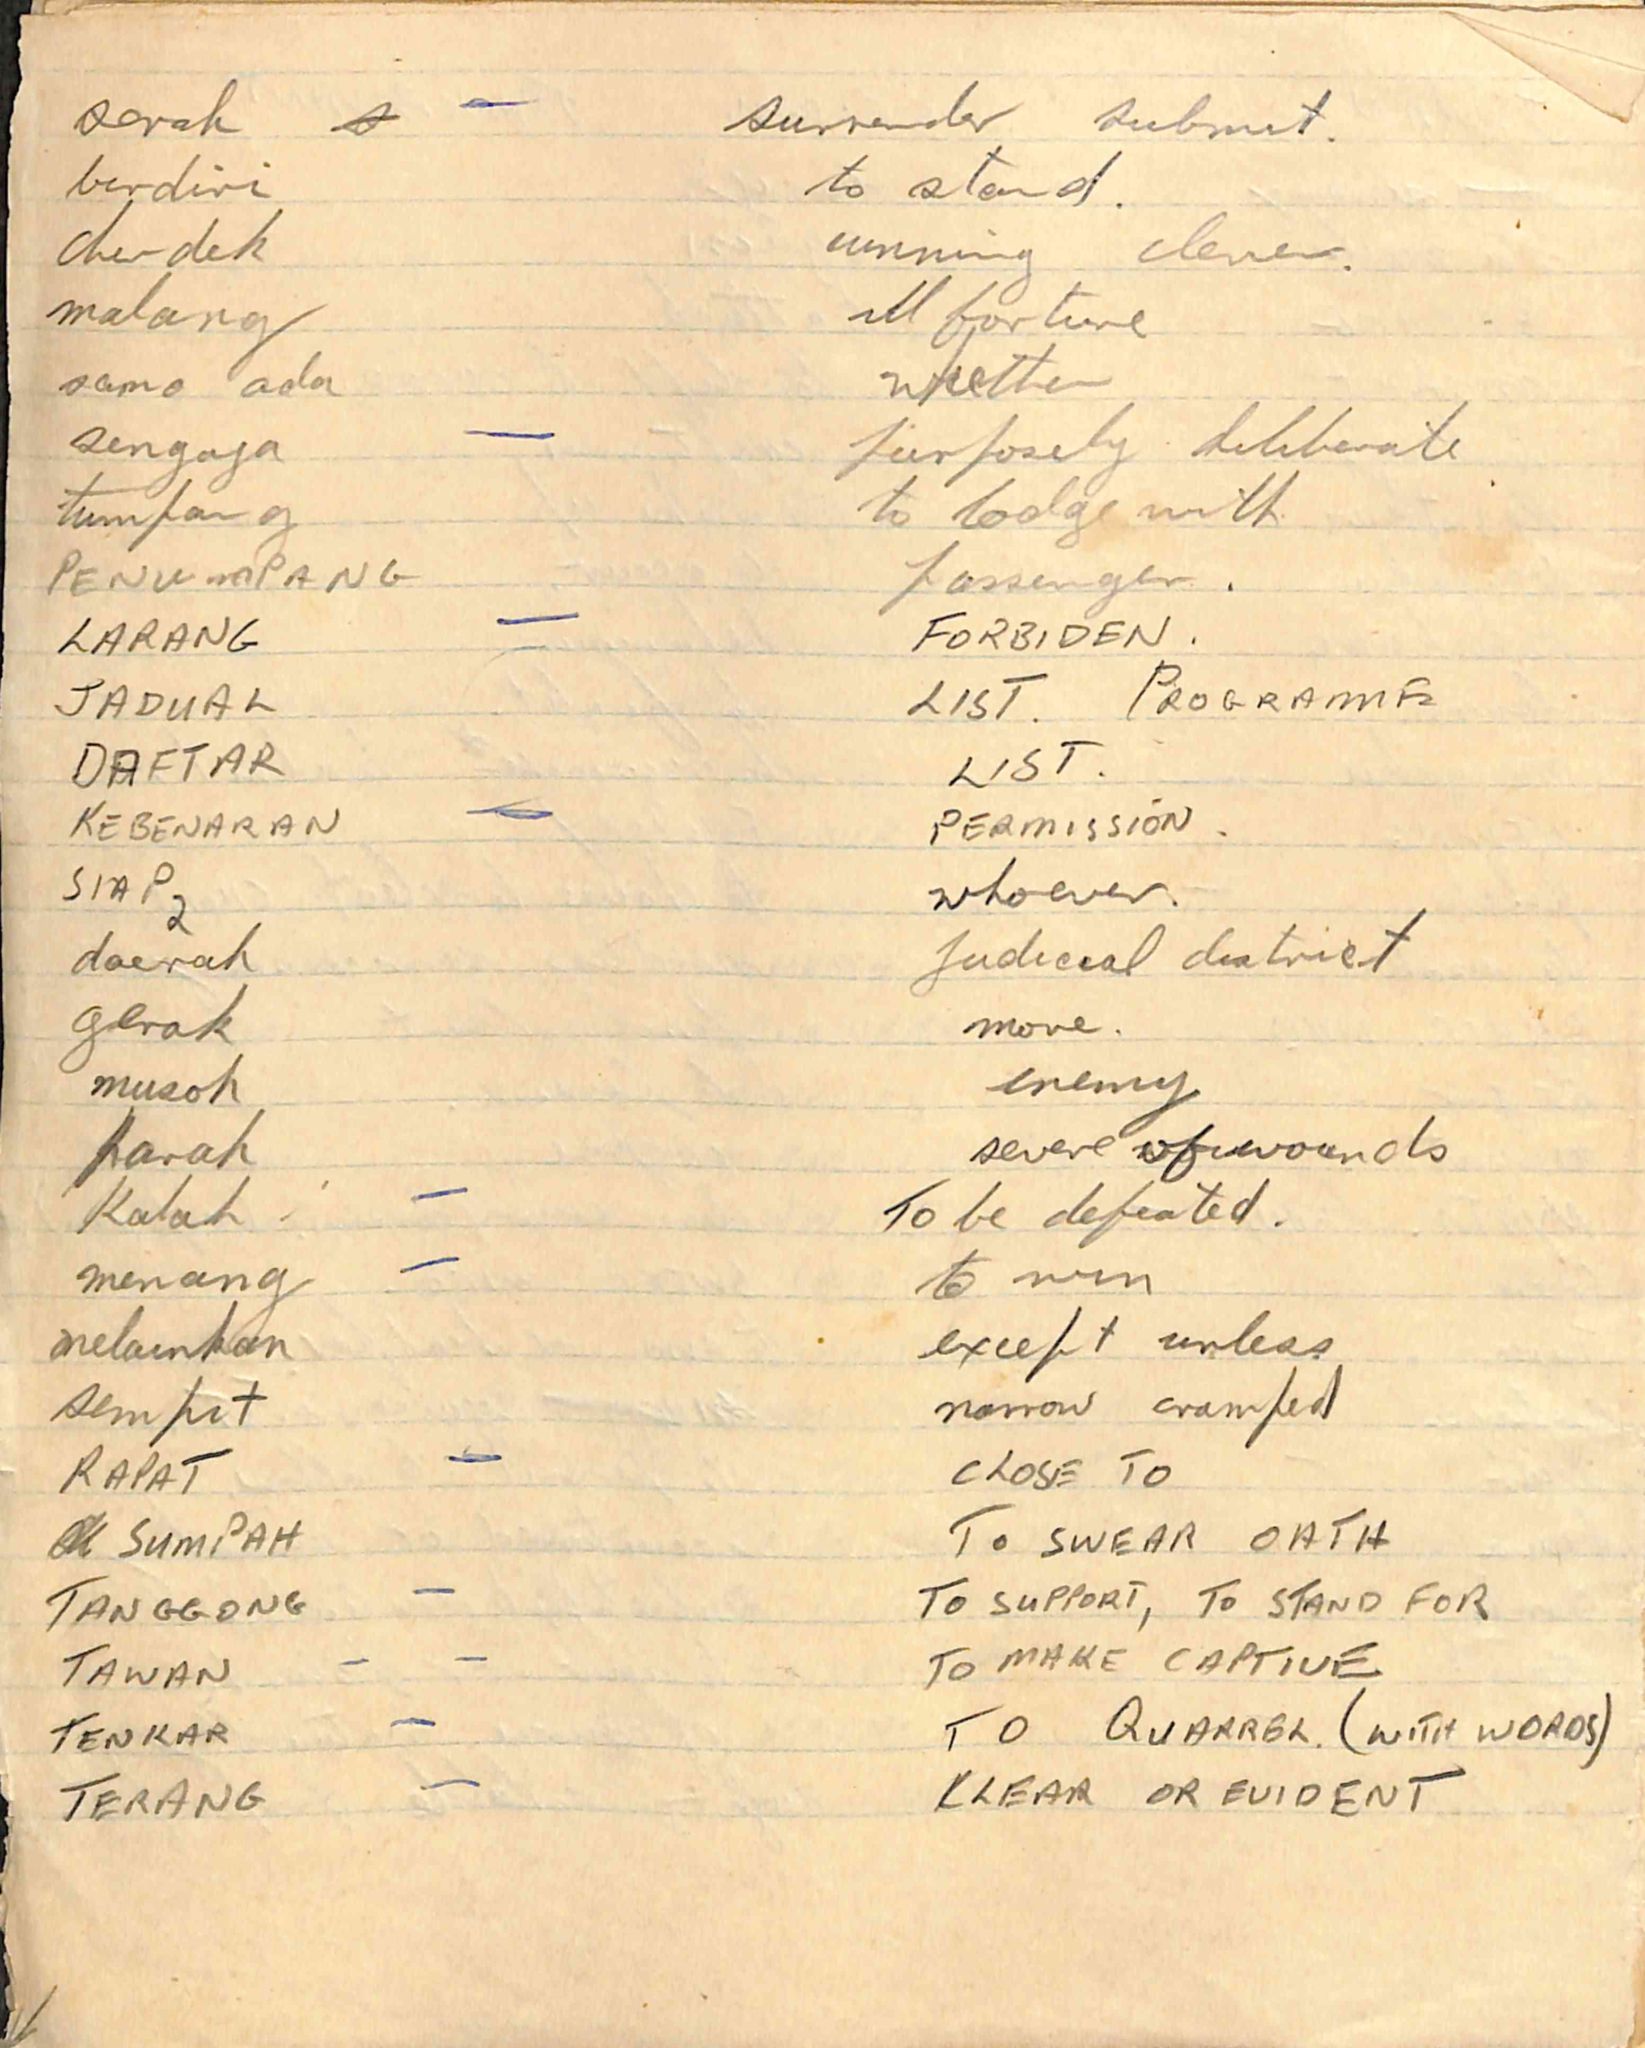 serah s — surrender submit.
berdiri to stand.
cherdek cunning clever.
malang ill fortune
sama ada whether
sengaja — purposely deliberate
tumpang to lodge with
PENUMPANG passenger.
LARANG — FORBIDEN.
JADUAL LIST. PROGRAMME
DAFTAR LIST.
KEBENARAN — PERMISSION.
SIAP2 whoever.
daerah judicial district
gerak move.
musoh enemy
parah severe of wounds
Kalah — To be defeated.
menang — to win
melainkan except unless
sempit narrow cramped
RAPAT — CLOSE TO
SUMPAH TO SWEAR OATH
TANGGONG — TO SUPPORT, TO STAND FOR
TAWAN - - TO MAKE CAPTIVE
TENKAR — TO QUARREL. (WITH WORDS)
TERANG — KLEAR OR EVIDENT